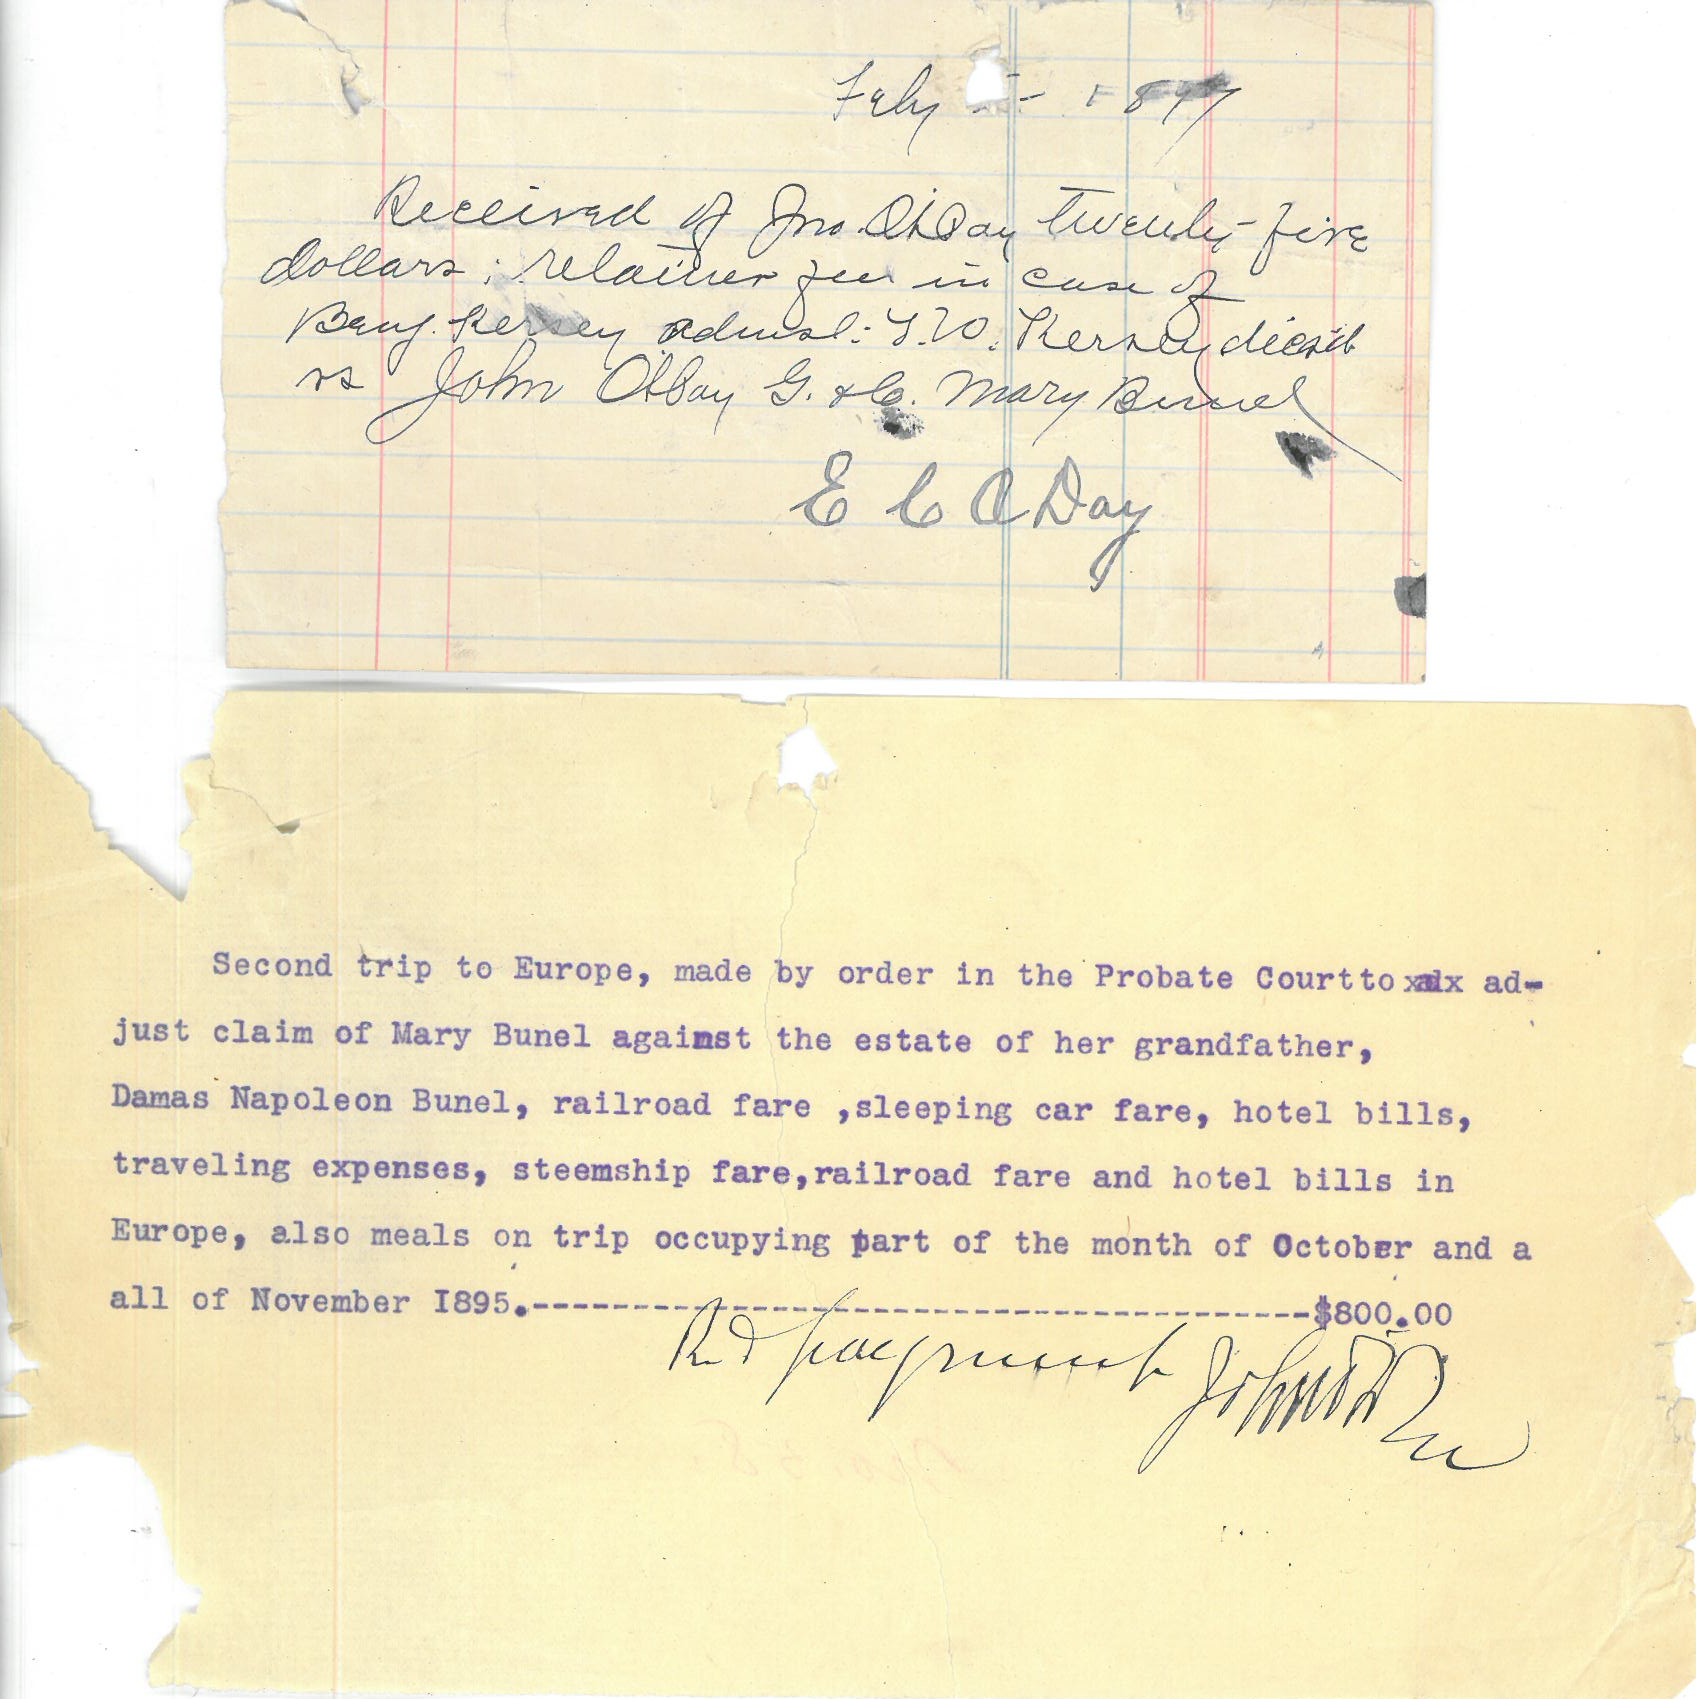 Feby - 1897
Received of Jno. O'Day twenty-five
dollars; retainer fee in case of
Benj. Kersey admst: T. W. Kersey
vs John O'Day G. & C. Mary Bunel
E C O'Day
Second trip to Europe, made by order in the Probate Courtto xadx ad-
just claim of Mary Bunel against the estate of her grandfather,
Damas Napoleon Bunel, railroad fare ,sleeping car fare, hotel bills,
traveling expenses, steemship fare,railroad fare and hotel bills in
Europe, also meals on trip occupying part of the month of October and a
all of November I895.---------------------------------------$800.00
Rd payment John